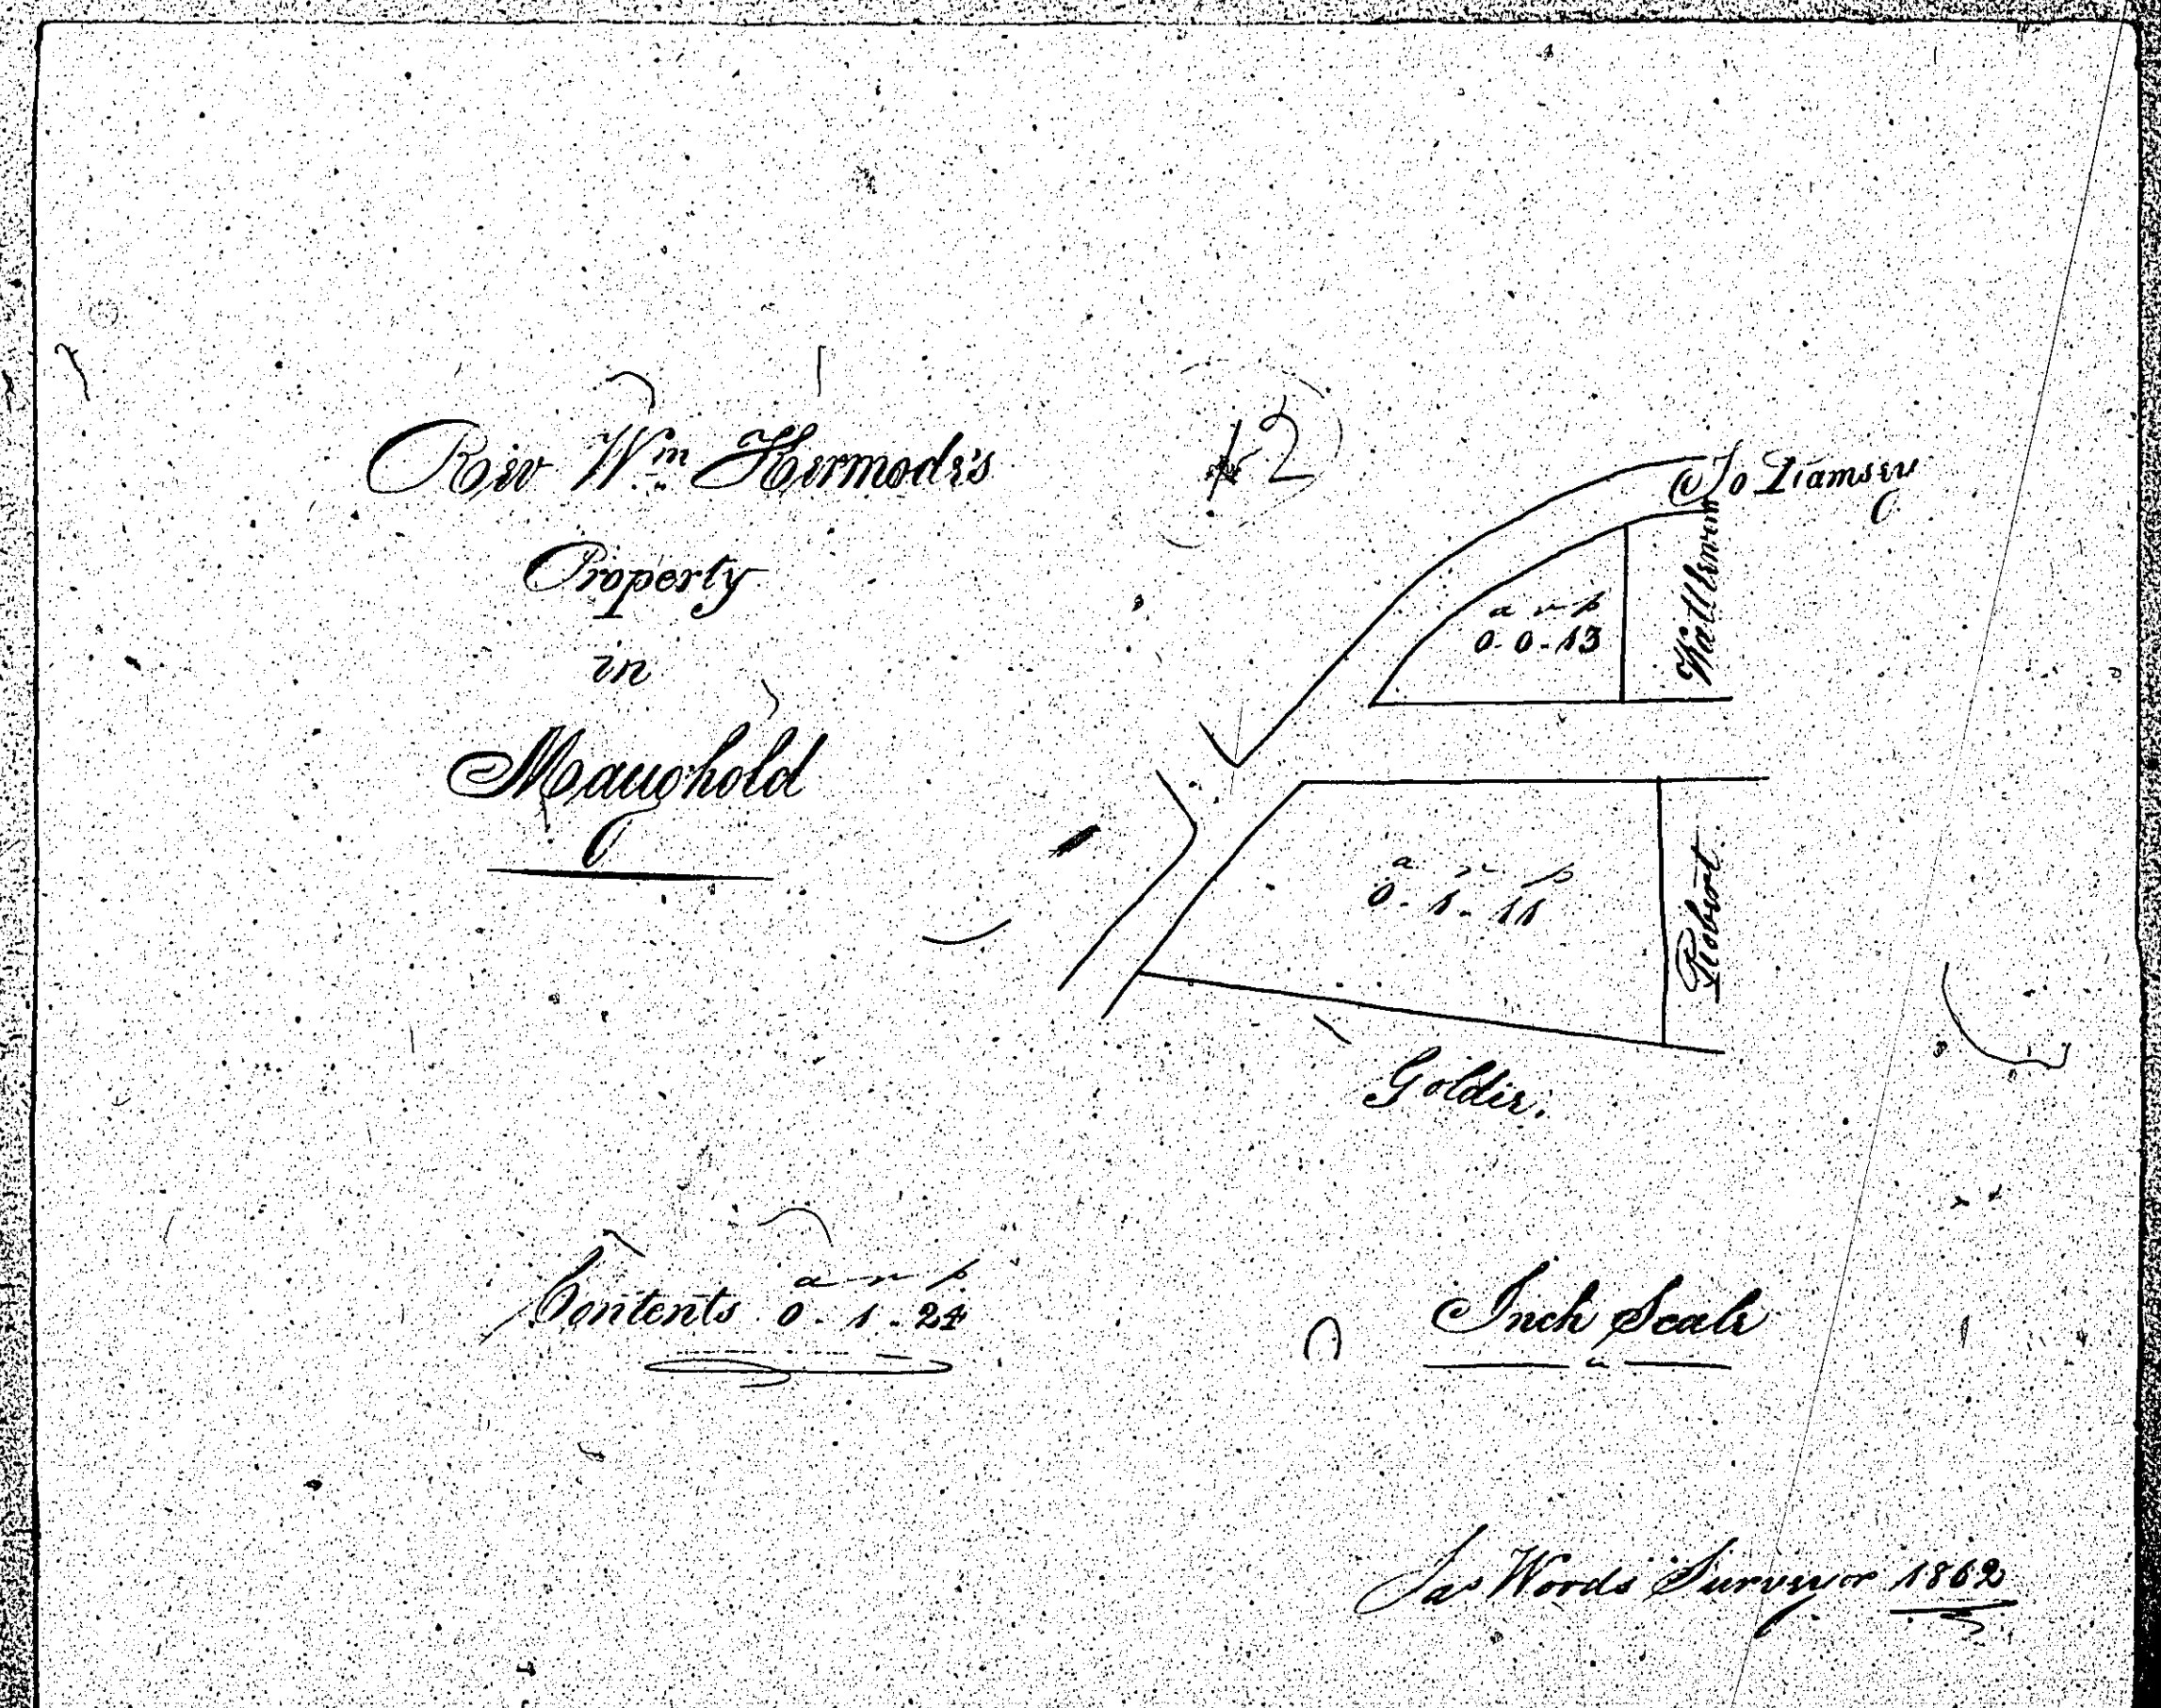 Rev Wm Kermode's
Property
in
Maughold
12
To Ramsey
a r p
0 - 0 - 13
a r p
0 - 1 - 11
Robert
Goldie.
a r p
Contents 0 - 1 - 24
Inch Scale
Jas Woods Surveyor 1862